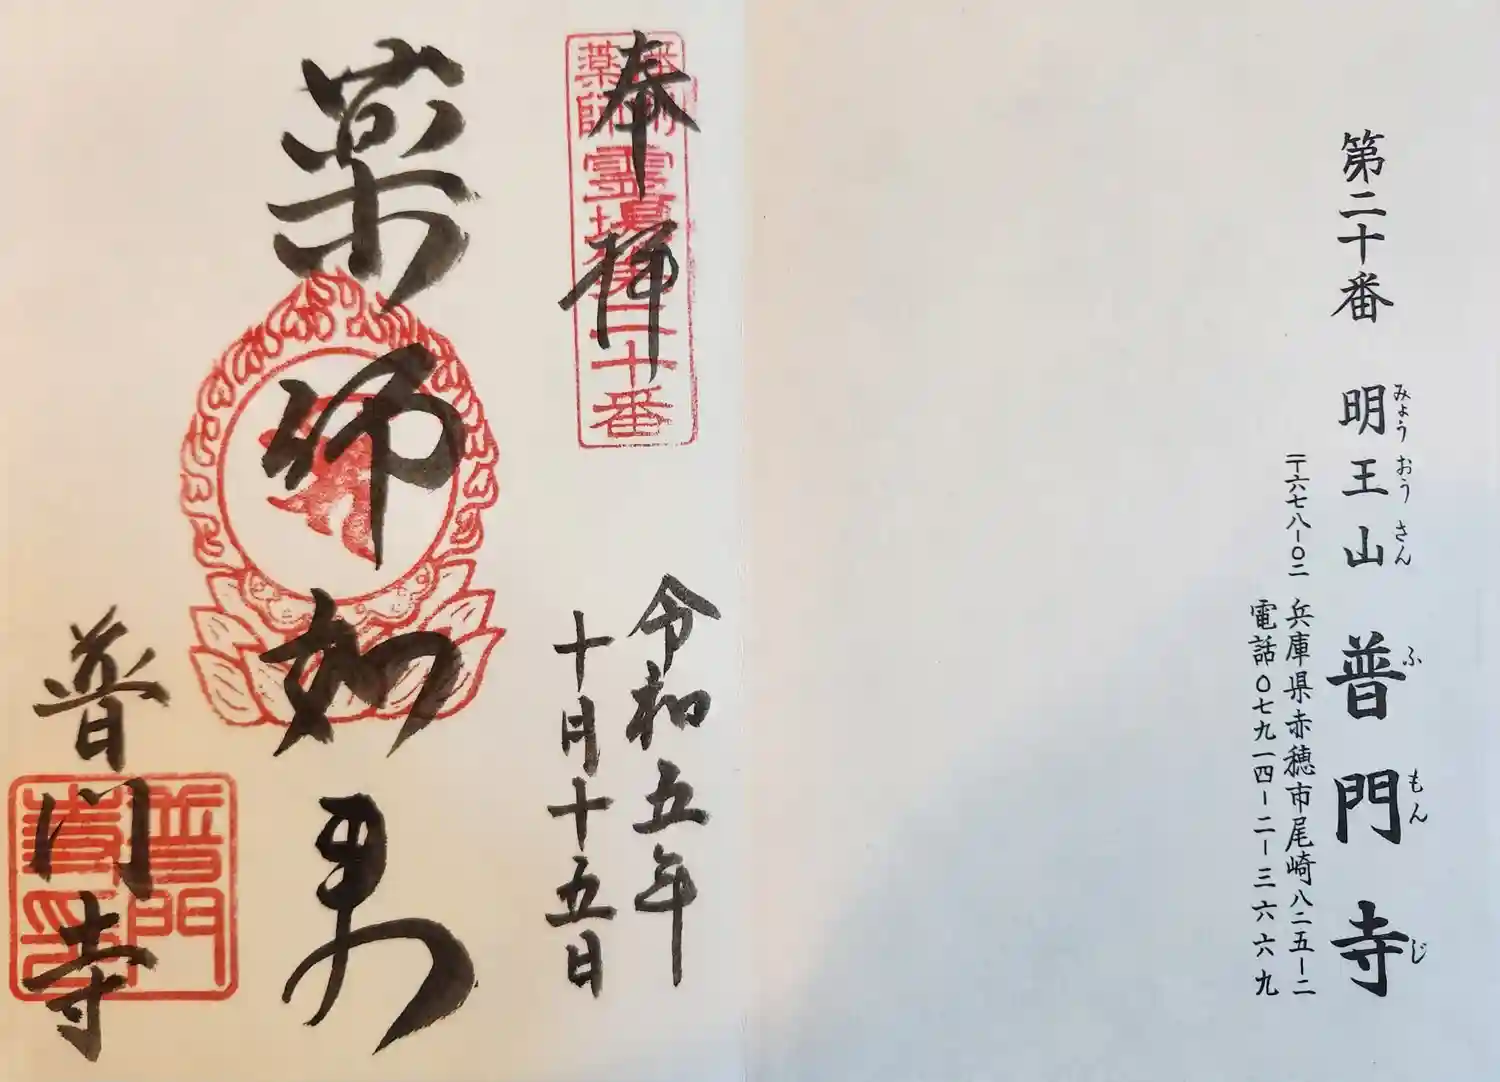 第二十番 明王山 普門寺
みょうおうさん ふもんじ
〒六七八-〇二 兵庫県赤穂市尾崎八二五-二
電話〇七九一四-二-三六六九
奉拝
播州薬師霊場第二十番
令和五年
十月十五日
薬師如来
普門寺
普門寺印